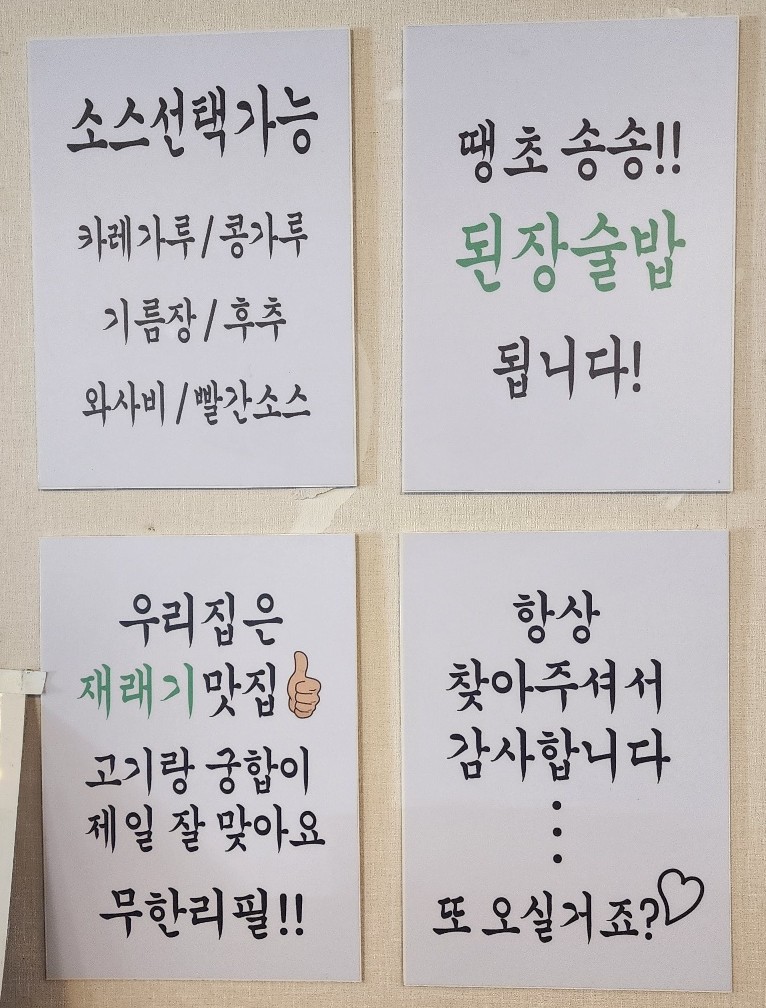 소스선택가능
카레가루/콩가루
기름장/후추
와사비/빨간소스
땡초 송송!!
된장술밥
됩니다!
우리집은
재래기맛집
고기랑 궁합이
제일 잘 맞아요
무한리필!!
항상
찾아주셔서
감사합니다
⋮
또 오실거죠?♡